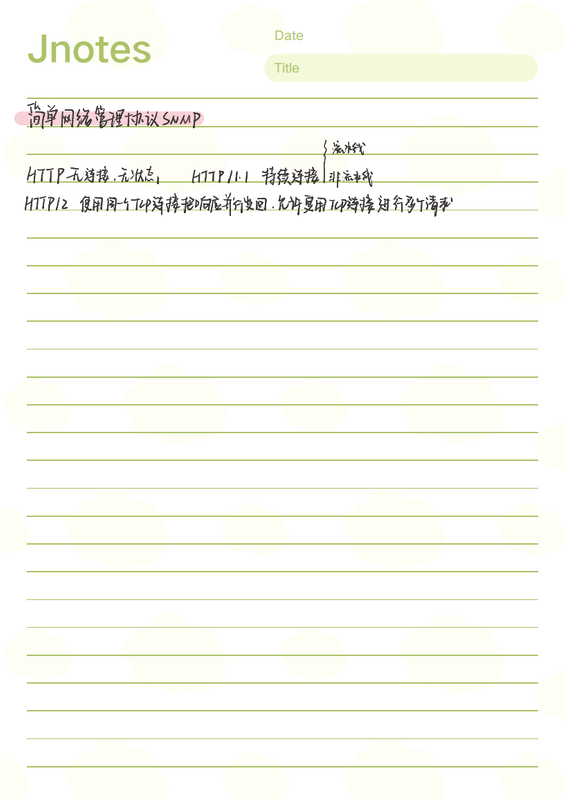 Jnotes
Date
Title
简单网络管理协议SNMP
流水线
HTTP 无连接.无状态, HTTP/1.1 持续连接 { 非流水线
HTTP/2 使用同一个TCP连接把响应并行发回.允许复用TCP连接进行多个请求